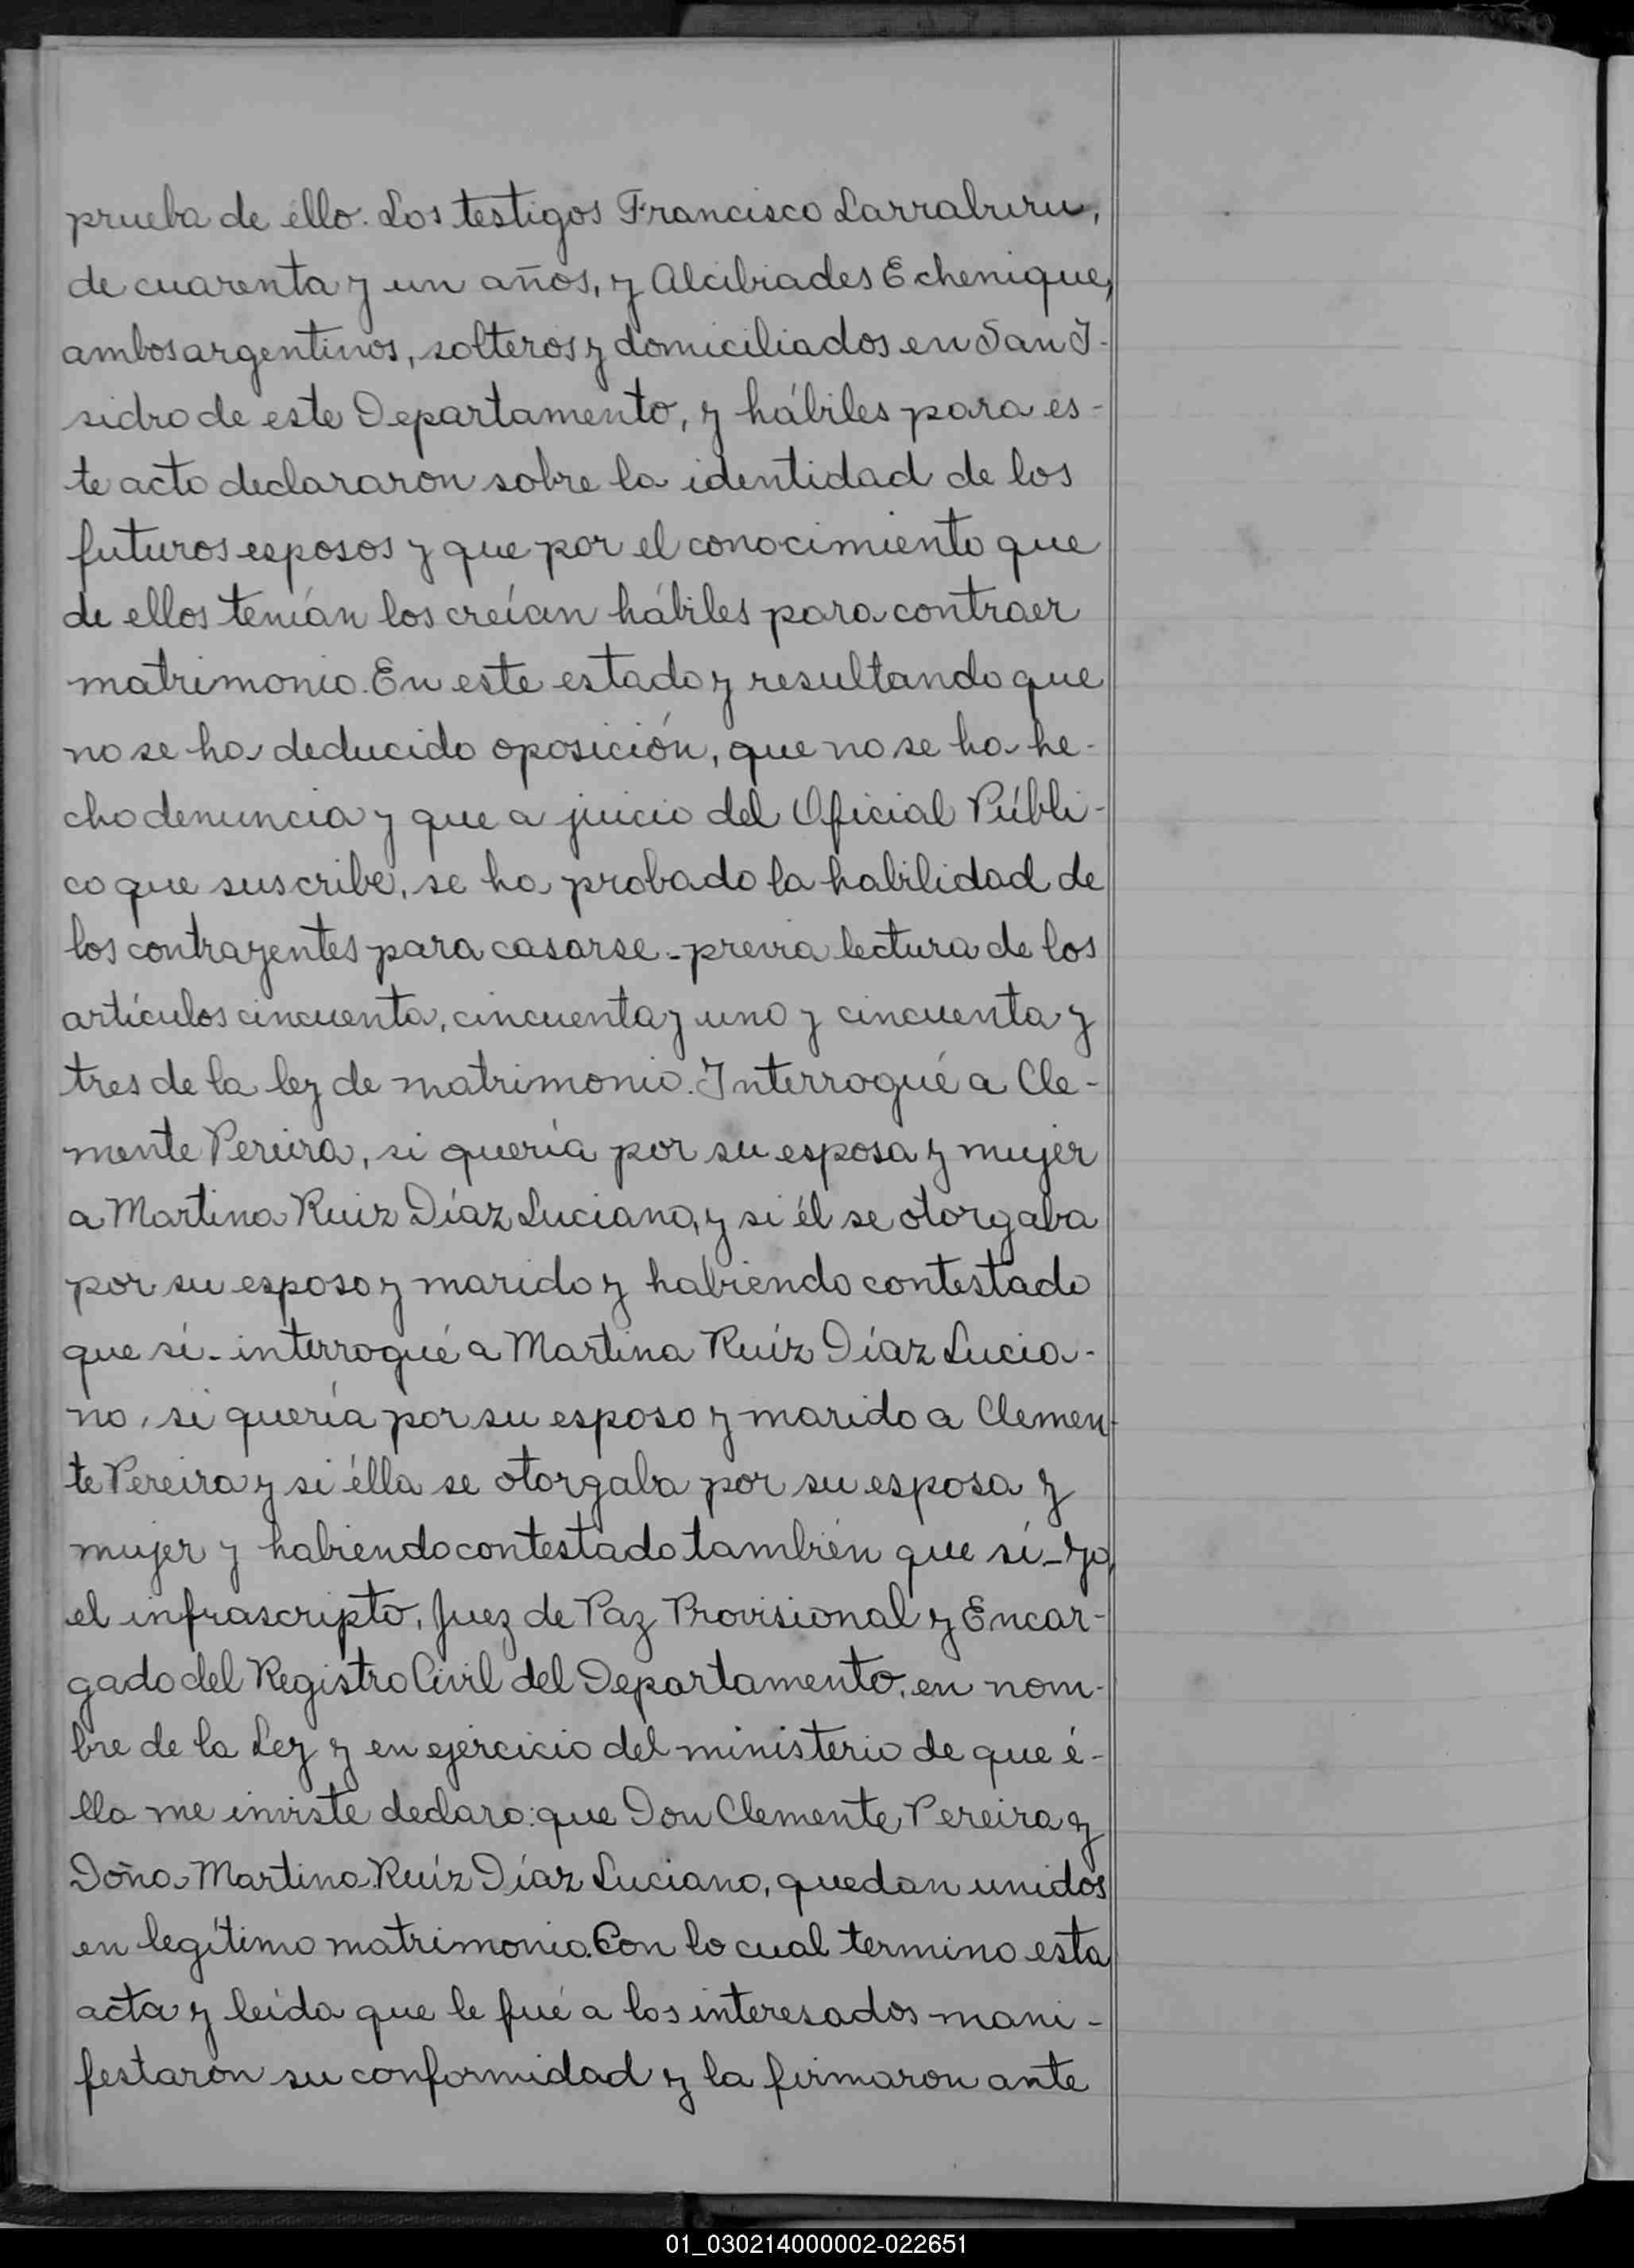 prueba de ello. Los testigos Francisco Larraburu,
de cuarenta y un años, y Alcibiades Echenique,
ambos argentinos, solteros y domiciliados en San I-
sidro de este Departamento, y hábiles para es-
te acto declararon sobre la identidad de los
futuros esposos y que por el conocimiento que
de ellos tenían los creían hábiles para contraer
matrimonio. En este estado y resultando que
no se ha deducido oposición, que no se ha he-
cho denuncia y que a juicio del Oficial Públi-
co que suscribe, se ha probado la habilidad de
los contrayentes para casarse - previa lectura de los
artículos cincuenta, cincuenta y uno y cincuenta y
tres de la ley de matrimonio. Interrogué a Cle-
mente Pereira, si quería por su esposa y mujer
a Martina Ruiz Díaz Luciano, y si él se otorgaba
por su esposo y marido y habiendo contestado
que sí - interrogué a Martina Ruíz Díaz Lucia-
no, si quería por su esposo y marido a Clemen-
te Pereira y si élla se otorgaba por su esposa y
mujer y habiendo contestado también que sí - yo,
el infrascripto, Juez de Paz Provisional y Encar-
gado del Registro Civil del Departamento, en nom-
bre de la Ley y en ejercicio del ministerio de que é-
lla me inviste declaro: que Don Clemente Pereira y
Doña Martina Ruíz Díaz Luciano, quedan unidos
en legítimo matrimonio. Con lo cual termino esta
acta y leída que le fué a los interesados mani-
festaron su conformidad y la firmaron ante
01_030214000002-022651